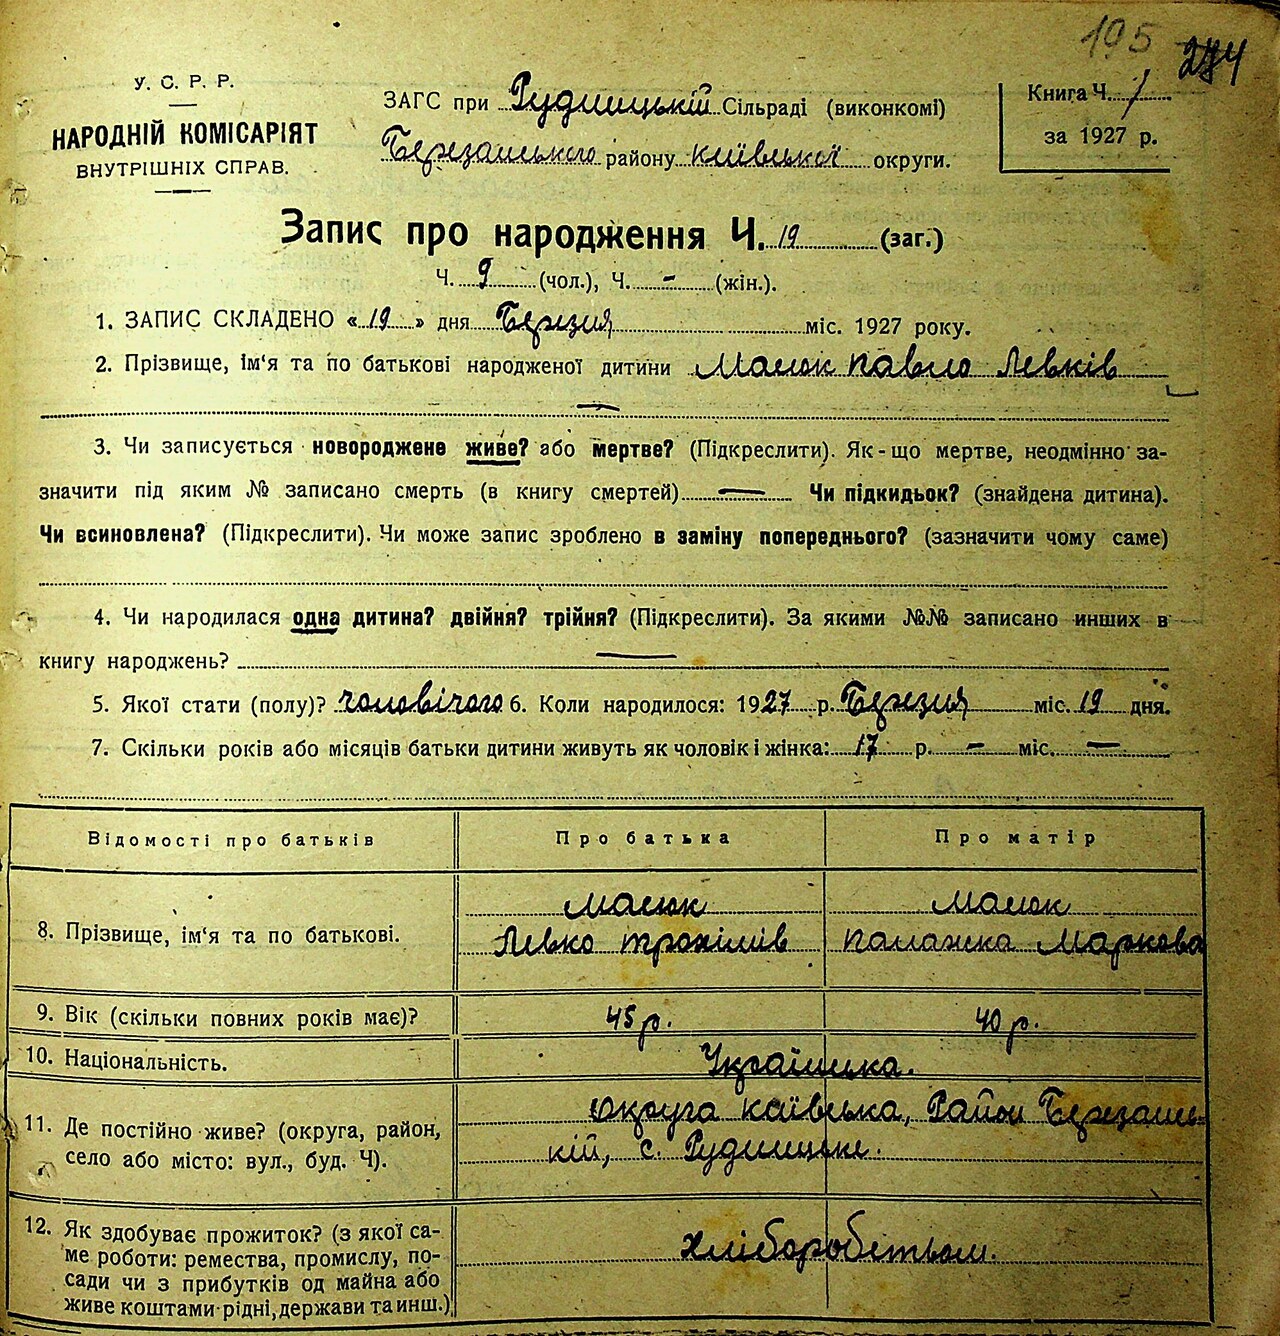 195 274
У. С. Р. Р.
НАРОДНІЙ КОМІСАРІЯТ
ВНУТРІШНІХ СПРАВ.
ЗАГС при Рудницькій Сільраді (виконкомі)
Березанського району київської округи.
Книга Ч. 1
за 1927 р.
Запис про народження Ч. 19 (заг.)
Ч. 9 (чол.), Ч. - (жін.).
1. ЗАПИС СКЛАДЕНО «19» дня Березня міс. 1927 року.
2. Прізвище, ім‘я та по батькові народженої дитини Масюк Павло Левків
3. Чи записується новороджене живе? або мертве? (Підкреслити). Як-що мертве, неодмінно за-
значити під яким № записано смерть (в книгу смертей) — Чи підкидьок? (знайдена дитина).
Чи всиновлена? (Підкреслити). Чи може запис зроблено в заміну попереднього? (зазначити чому саме)
4. Чи народилася одна дитина? двійня? трійня? (Підкреслити). За якими №№ записано инших в
книгу народжень? —
5. Якої стати (полу)? чоловічого 6. Коли народилося: 1927 р. Березня міс. 19 дня.
7. Скільки років або місяців батьки дитини живуть як чоловік і жінка: 17 р. — міс. —
Відомості про батьків Про батька Про матір
8. Прізвище, ім‘я та по батькові.
Масюк Масюк
Левко Трохимів Палажка Маркова
9. Вік (скільки повних років має)? 45 р. 40 р.
10. Національність. Українська.
11. Де постійно живе? (округа, район,
село або місто: вул., буд. Ч).
округа київська, Район Березансь-
кій, с. Рудницьке.
12. Як здобуває прожиток? (з якої са-
ме роботи: ремества, промислу, по-
сади чи з прибутків од майна або
живе коштами рідні, держави та инш.)
хліборобством.